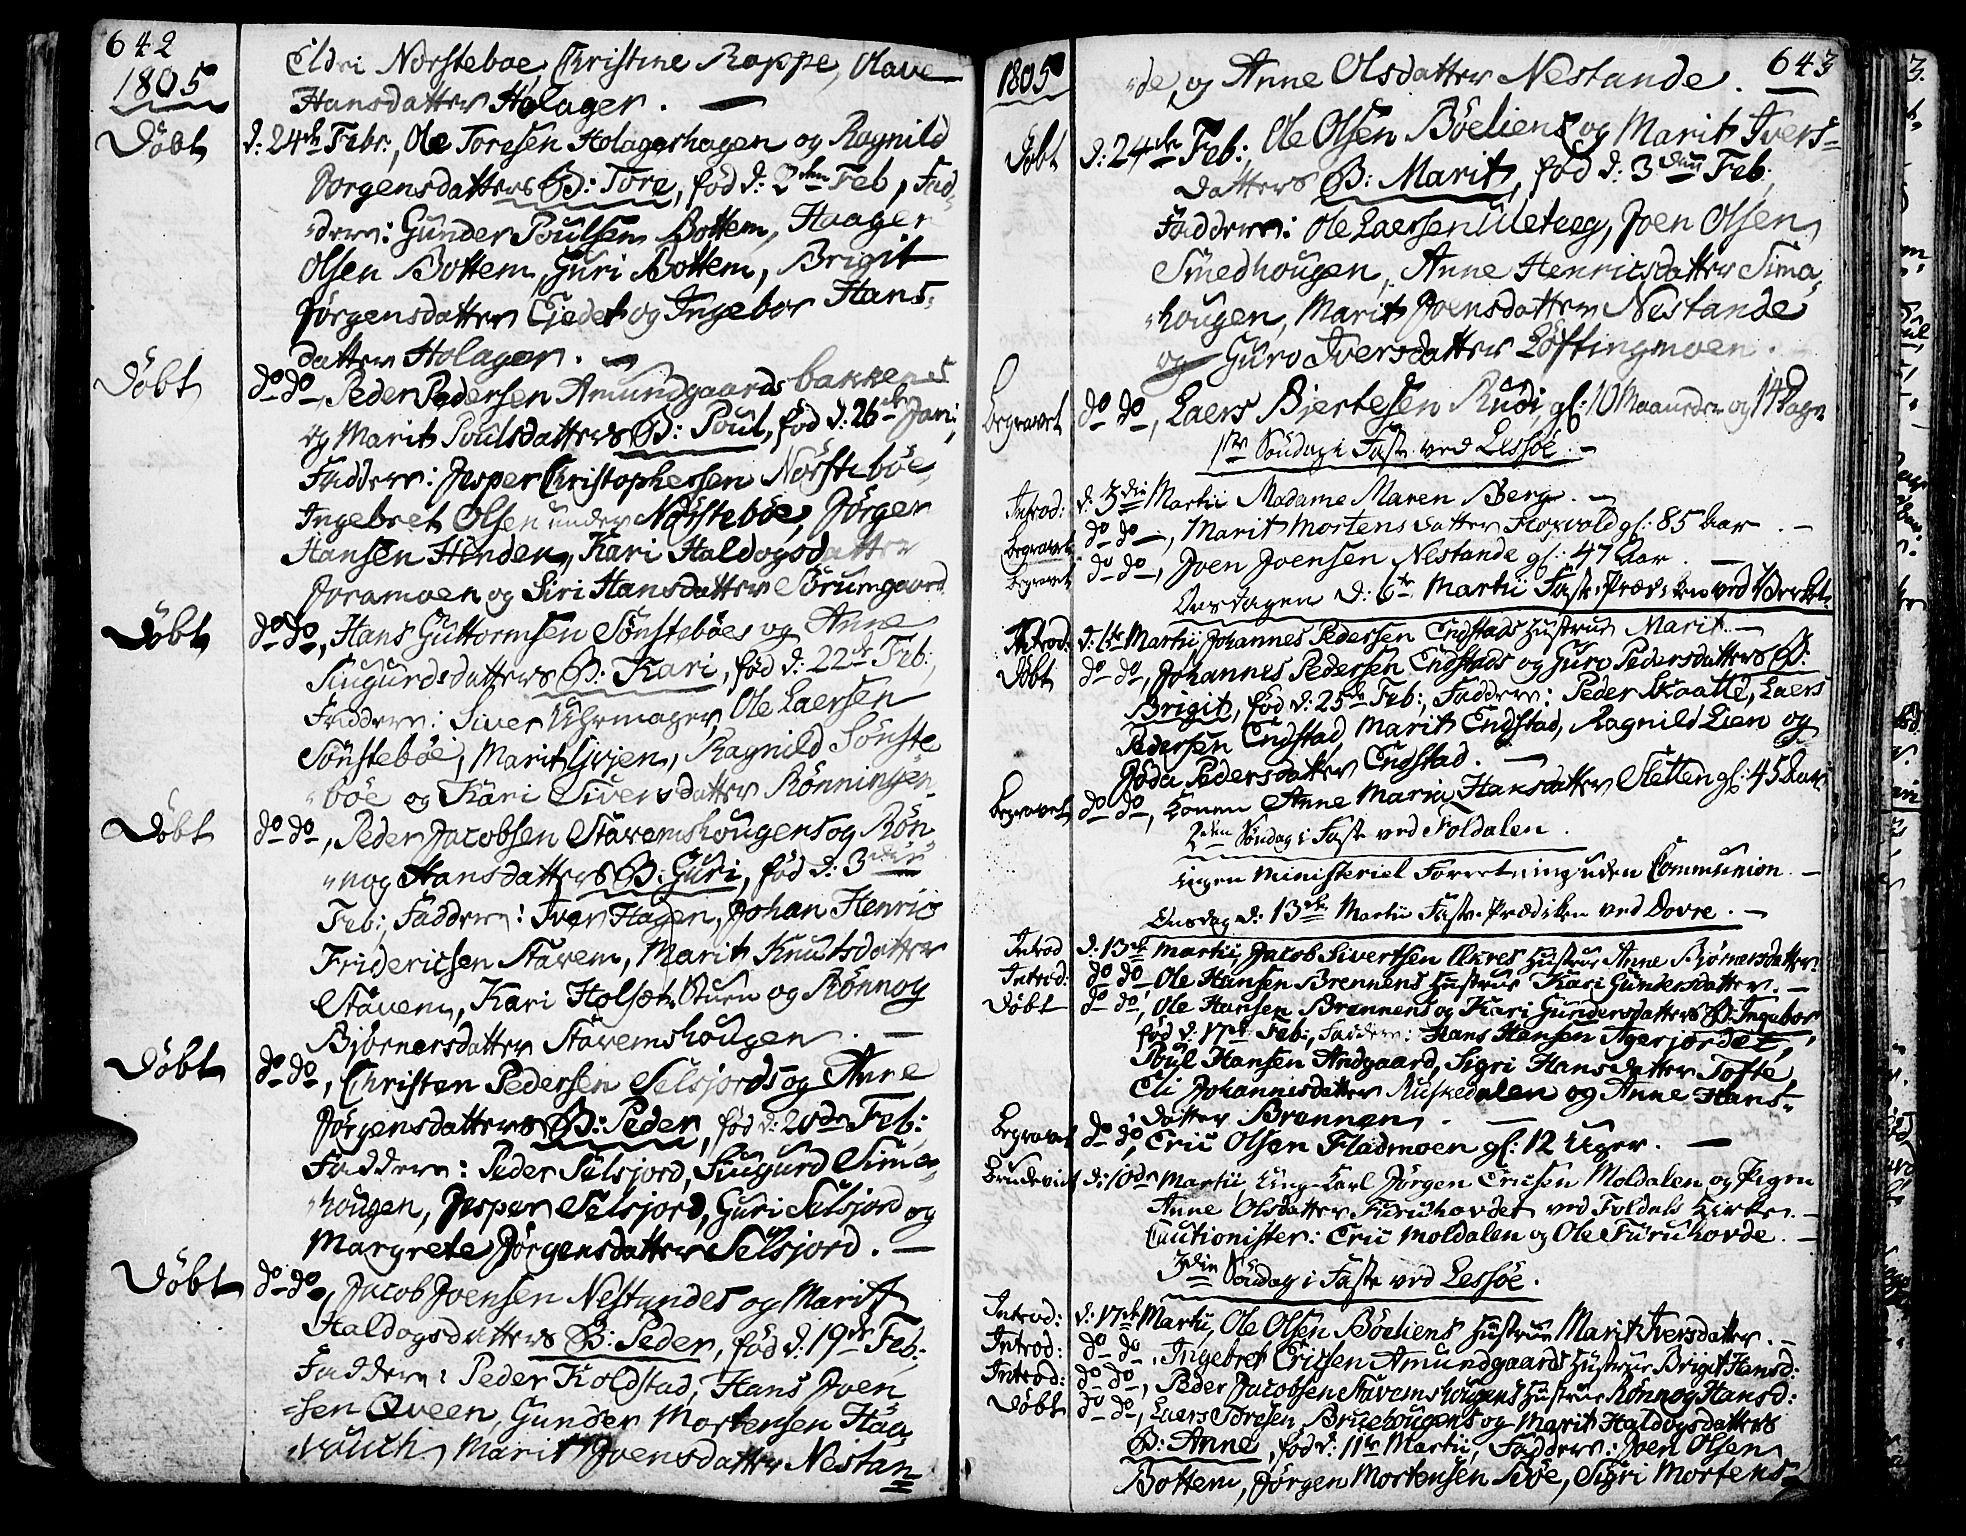 642
1805
Eldri Norsteboe, Christine Rappe, Olave
Hansdatter Holager. —
Döbt
d: 24de Febr:, Ole Toresen Holagershagen og Ragnild
Jorgensdatters B: Tore, föd d: 2den Feb, Fad-
dere: Gunder Poulsen Bottem, Haager
Olsen Bottem, Guri Bottem, Brigit
Jörgensdatter Ejedet og Ingebor Hans-
datter Holager. —
Döbt
do do, Peder Pedersen Amundgaardsbakkens
og Marit Poulsdatters B: Poul, föd d: 26de Jan:,
Faddere: Jesper Christophersen Nörsteböe,
Ingebret Olsen under Nörsteböe, Jörgen
Hansen Hinden, Kari Haldogsdatter
Joramoen og Siri Hansdatter Sörumgaard
Döbt
do do, Hans Guttormsen Sönsteböes og Anne
Siugurdsdatters B: Kari, föd d: 22de Feb:,
Faddere: Siver Uhrmager, Ole Laersen
Sönsteböe, Marit Gvjen, Ragnild Sönste
böe og Kari Siversdatter Rönningen.
Döbt
do do, Peder Jacobsen Stavemshougens og Rön
nog Hansdatters B: Guri, föd d: 3die
Feb:, Faddere: Iver Hagen, Johan Henric
Fridericsen Stavem, Marit Knutsdatter
Stavem, Kari Holset Stuen og Rönnog
Björnersdatter Stavemshougen. —
Döbt
do do, Christen Pedersen Selsjords og Anne
Jörgensdatters B: Peder, föd d: 20de Feb:,
Faddere: Peder Selsjord, Siugurd Sima-
hougen, Jesper Selsjord, Guri Selsjord og
Margrete Jörgensdatter Selsjord. —
Döbt
do do, Jacob Joensen Nestandes og Marit
Haldogsdatters B: Peder, föd d: 19de Feb:,
Faddere: Peder Koldstad, Hans Joen
sen Qveen, Gunder Mortensen Haa-
, Marit Joensdatter Nestan-
1805
643
de, og Anne Olsdatter Nestande.
Döbt
d: 24de Feb:, Ole Olsen Böeliens og Marit Ivers-
datters B: Marit, föd d: 3die Feb:,
Faddere: Ole Laersen Uletveg, Joen Olsen
Smedhougen, Anne Henricsdatter Sima-
hougen, Marit Joensdatter Nestande
og Guro Iversdatter Löftingmoen.
Begravet
do do, Laers Biertesen Rudi, gl: 10 Maaneder og 14 Dage.
1ste Söndag i Faste ved Lessöe. —
Introd:
d: 3die Martii Madame Maren Berg. —
Begravet
do do —, Marit Mortensdatter Horvold gl: 85 Aar. —
Begravet
do do, Joen Joensen Nestande gl: 47 Aar. —
Onsdagen d: 6te Martii Faste-Prædiken ved Verket.
Introd:
d: 6te Martii, Johannes Pedersen Endstads Hustrue Marit. —
Döbt
do do, Johannes Pedersen Endstads og Guro Pedersdatters B:
Brigit, föd d: 25de Feb:, Faddere: Peder Skotte, Laers
Pedersen Endstad, Marit Endstad, Ragnild Lien og
Jöda Pedersdatter Endstad. —
Begravet
do do, Konen Anne Maria Hansdatter Sletten gl: 45 Aar.
2den Söndag i Faste ved Foldalen.
ingen Ministeriel Forretning uden Communion. —
Onsdag d: 13de Martii Faste-Prædiken ved Dovre. —
Introd
d: 13de Martii, Jacob Sivertsen Ekres Hustrue Anne Björnersdatter.
Introd:
do do Ole Hansen Brennens Hustrue Kari Gundersdatter. —
Döbt
do do, Ole Hansen Brennens og Kari Gundersdatters B: Ingebor
föd d: 17de Feb:, Faddere: Hans Hansen Agerjordet,
Poul Hansen Andgaard, Sigri Hansdatter Tofte,
Eli Johannisdatter Ruskedalen og Anne Hans-
datter Brennen. —
Begravet
do do, Eric Olsen Fladmoen gl: 12 Uger. —
Brudeviet
d: 10de Martii, Ung-Karl Jörgen Ericsen Moldalen og Pigen
Anne Olsdatter Furuhovdet ved Foldals Kirke. —
Cautionister: Eric Moldalen og Ole Furuhovde. —
3die Söndag i Faste ved Lessöe.
Introd:
d: 17de Martii, Ole Olsen Böeliens Hustrue Marit Iversdatter. —
Introd:
do do, Ingebret Ericsen Amundgaards Hustrue Brigit Hansd:
Introd:
do do, Peder Jacobsen Stavemshougens Hustrue Rönnog Hansd:
Döbt
do do, Laers Toresen Bruehougens og Marit Haldogsdatters
B: Anne, föd d: 11te Martii, Faddere: Joen Olsen
Bottem, Jörgen Mortensen Böe, Sigri Mortens-